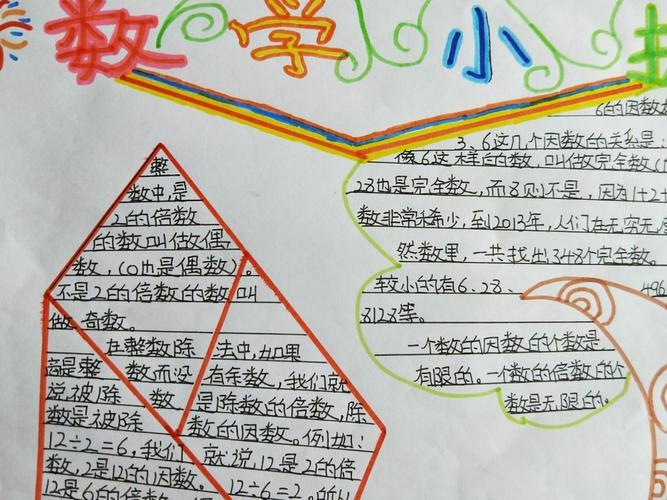 数学小
整
数中,是
2的倍数
的数叫做偶
数,(0也是偶数)。
不是2的倍数的数叫
做奇数。
在整数除法中,如果
商是整数而没有余数,我们就
说被除数是除数的倍数,除
数是被除数的因数。例如:
12÷2=6,我们就说,12是2的倍
数,2是12的因数。12÷6=2。所以
12是6的倍数
6的因数
3、6这几个因数的关系是:
像6这样的数,叫做完全数(
28也是完全数,而8则不是,因为1+2
数非常稀少,到2013年,人们在无穷无
然数里,一共找出348个完全数。
较小的有6、28、496
8128等。
一个数的因数的个数是
有限的。一个数的倍数的个
数是无限的。